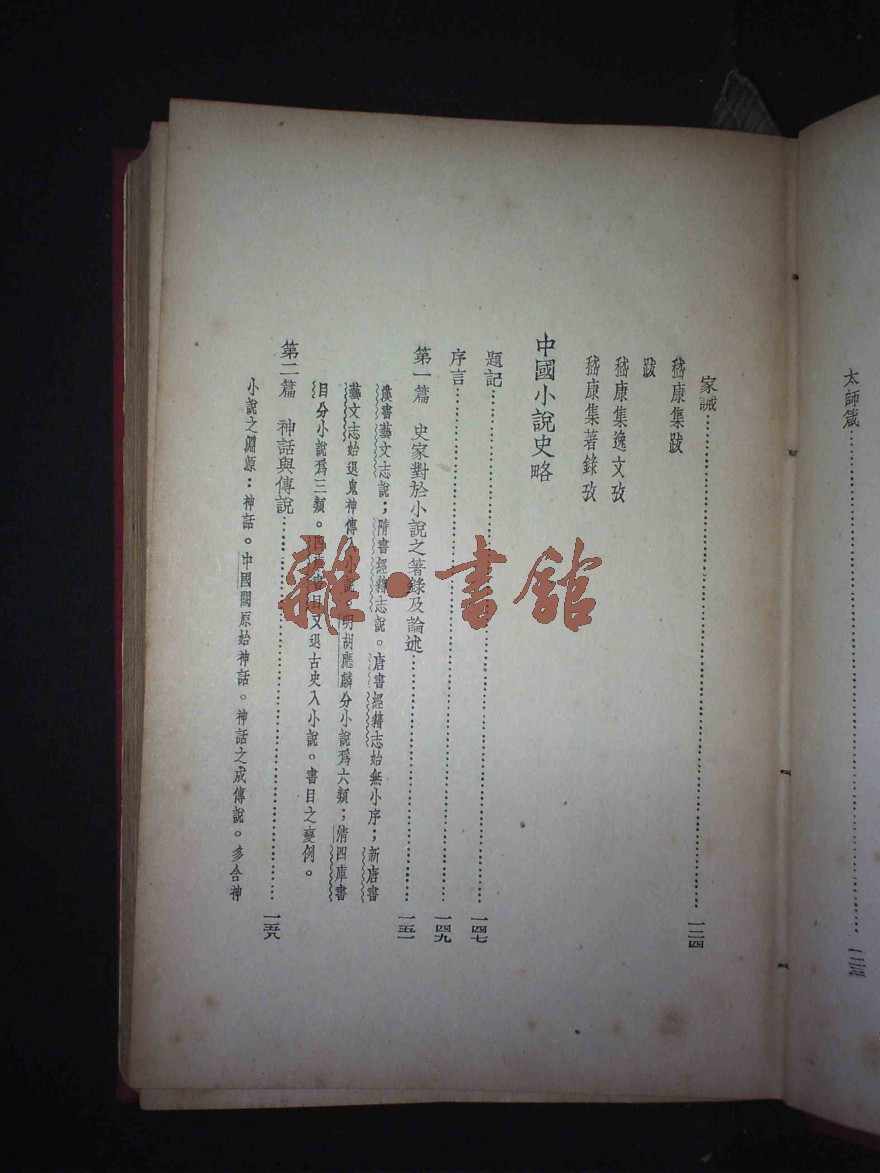 太師箴
家誡……一三四
嵇康集跋
跋
嵇康集逸文攷
嵇康集著錄攷
中國小說史略
題記……一四七
序言……一四九
第一篇 史家對於小說之著錄及論述……一五一
漢書藝文志說;隋書經籍志說。唐書經籍志始無小序;新唐書
藝文志始退鬼神傳入小說。明胡應麟分小說爲六類;清四庫書
目分小說爲三類。四庫書目又退古史入小說。書目之變例。
第二篇 神話與傳說……一五八
小說之淵源:神話。中國闕原始神話。神話之成傳說。多含神
雜·書館